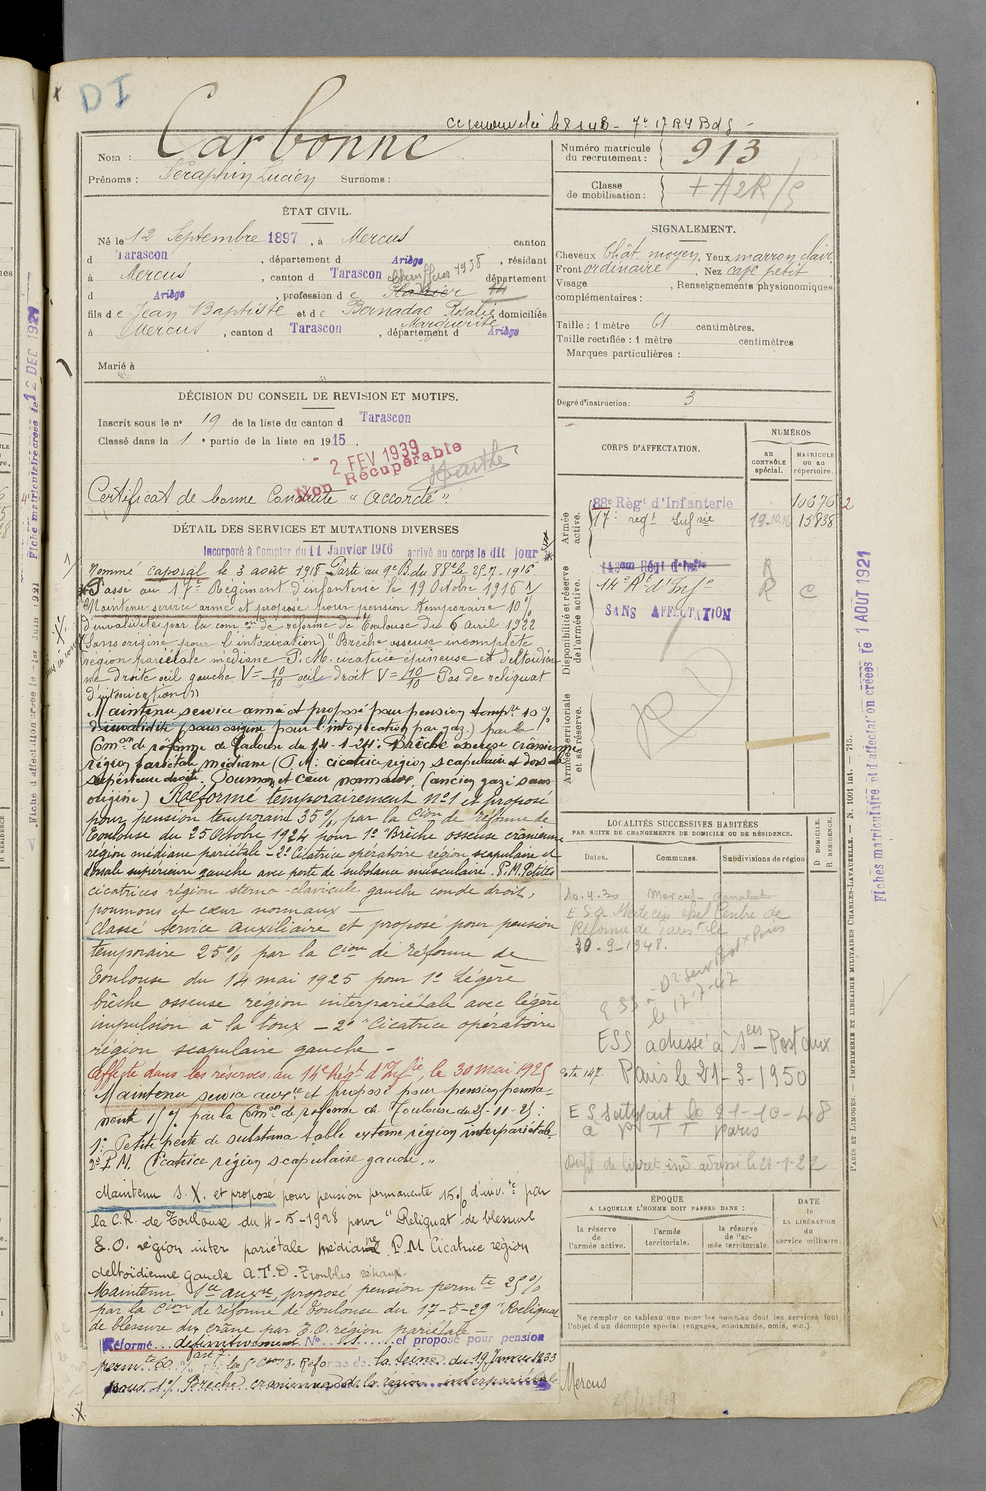 DI
Carbonne
Nom :
Prénoms : Séraphin Lucien Surnoms :
ÉTAT CIVIL.
Né le 12 Septembre 1897, à Mercus canton
d Tarascon, département d Ariège, résidant
à Mercus, canton d Tarascon Chauffeur 1938 département
d Ariège, profession d e
fils d e Jean Baptiste et d e Bernadac Rosalie domiciliés
Marguerite
à Mercus, canton d Tarascon, département d Ariège
Marié à
DÉCISION DU CONSEIL DE REVISION ET MOTIFS.
Inscrit sous le n° 19 de la liste du canton d Tarascon
Classé dans la 1e partie de la liste en 1915.
2 FEV 1939
Non Récupérable
Certificat de bonne Conduite "Accordé".
DÉTAIL DES SERVICES ET MUTATIONS DIVERSES
Incorporé à Compter du 11 Janvier 1916 arrivé au corps le dit jour
Nommé caporal le 3 août 1918 Parti au 9e B. du 88e le 25-7-1916
Passé au 17e Régiment d'infanterie le 19 Octobre 1916
Maintenu service armé et proposé pour pension temporaire 10%
d'invalidité par la com on de réforme de Toulouse du 6 Avril 1922
(Sans origine pour l'intoxication) "Brèche osseuse incomplète
région pariétale médiane P.M. cicatrice épineuse et deltoïdien
ne droite œil gauche V= 10/10 œil droit V= 10/10 Pas de reliquat
d'intoxication")
Maintenu service armé et proposé pour pension temp re 10%
d'invalidité (sans origine pour l'intoxication par gaz) par la
Com on de réforme de Toulouse du 14-1-24. Brèche osseuse crânienne
région pariétale médiane (P.M: cicatrice région scapulaire et dorsale
supérieure droite. Poumon et cœur normaux, (ancien gazé sans
origine) Réformé temporairement n°1 et proposé
pour pension temporaire 35% par la Cion de réforme de
Toulouse du 25 Octobre 1924 pour 1° Brèche osseuse crânienne
région médiane pariétale - 2° Cicatrice opératoire région scapulaire et
dorsale supérieure gauche avec perte de substance musculaire. P.M. Petites
cicatrices région sterno-claviculaire gauche coude droit,
poumons et cœur normaux —
Classé Service Auxiliaire et proposé pour pension
temporaire 25% par la Cion de réforme de
Toulouse du 14 mai 1925 pour 1° Légère
brèche osseuse région interpariétale avec légère
impulsion à la toux — 2° "Cicatrice opératoire
région scapulaire gauche —
Affecté dans les réserves au 14e Régt d'Inf ie le 30 mai 1925
Maintenu service aux re et proposé pour pension perma-
nente 15% par la Com on de réforme de Toulouse du 25-11-25 :
1° Petite perte de substance table externe région interpariétale,
2° P.M. Cicatrice région scapulaire gauche."
Maintenu S.X. et proposé pour pension permanente 15% d'inv. té par
la C.R. de Toulouse du 4-5-1928 pour "Reliquat de blessure
T.O. région inter pariétale médiane P.M Cicatrice région
deltoïdienne gauche A.T.D.
Maintenu S ce aux re proposé pension perm te 25%
par la Cion de réforme de Toulouse du 17-5-29 "Reliquat
de blessure du crâne par T.O. région pariétale —
Réformé définitivement N° 1 et proposé pour pension
perm. te 60% par la C on de Réforme de la Seine du 19 Janvier 1933
pour 1°/ Brèche crânienne de la région interpariétale
Numéro matricule
du recrutement : 913
Classe
de mobilisation :
SIGNALEMENT.
Cheveux chât. moyen, Yeux marron clair
Front ordinaire, Nez cave petit
Visage , Renseignements physionomiques
complémentaires :
Taille : 1 mètre 61 centimètres.
Taille rectifiée : 1 mètre centimètres
Marques particulières :
Degré d'instruction : 3
CORPS D'AFFECTATION.
NUMÉROS
AU CONTRÔLE spécial.
MATRICULE ou au répertoire.
Armée active.
88e Règt d'Infanterie 10676
17e regt Infrie 19-10-16 15838
Disponibilité et réserve de l'armée active.
14e Rt d'Inf ie R C
SANS AFFECTATION
Armée territoriale et sa réserve.
LOCALITÉS SUCCESSIVES HABITÉES
PAR SUITE DE CHANGEMENTS DE DOMICILE OU DE RÉSIDENCE.
Dates. Communes. Subdivisions de région
D DOMICILE.
R RÉSIDENCE.
10.4.30 Mercus-Garrabet
ES à Médecin chef Centre de
Réforme de Paris le
30-9-1948.
le 17-7-47
ESS adressé à Paris le 21-3-1950
ES Satisfait le 21-10-48
à P T T Paris
ÉPOQUE
A LAQUELLE L'HOMME DOIT PASSER DANS :
la réserve de l'armée active.
l'armée territoriale.
la réserve de l'armée territoriale.
DATE
de
LA LIBÉRATION
du
service militaire.
Ne remplir ce tableau que pour les hommes dont les services font
l'objet d'un décompte spécial (engagés, condamnés, omis, etc.).
Mercus
Fiches matriculaire et d'affectation créées le 1 AOUT 1921
PARIS ET LIMOGES. — IMPRIMERIE ET LIBRAIRIE MILITAIRES CHARLES-LAVAUZELLE. — N. 1001 int. — 715.